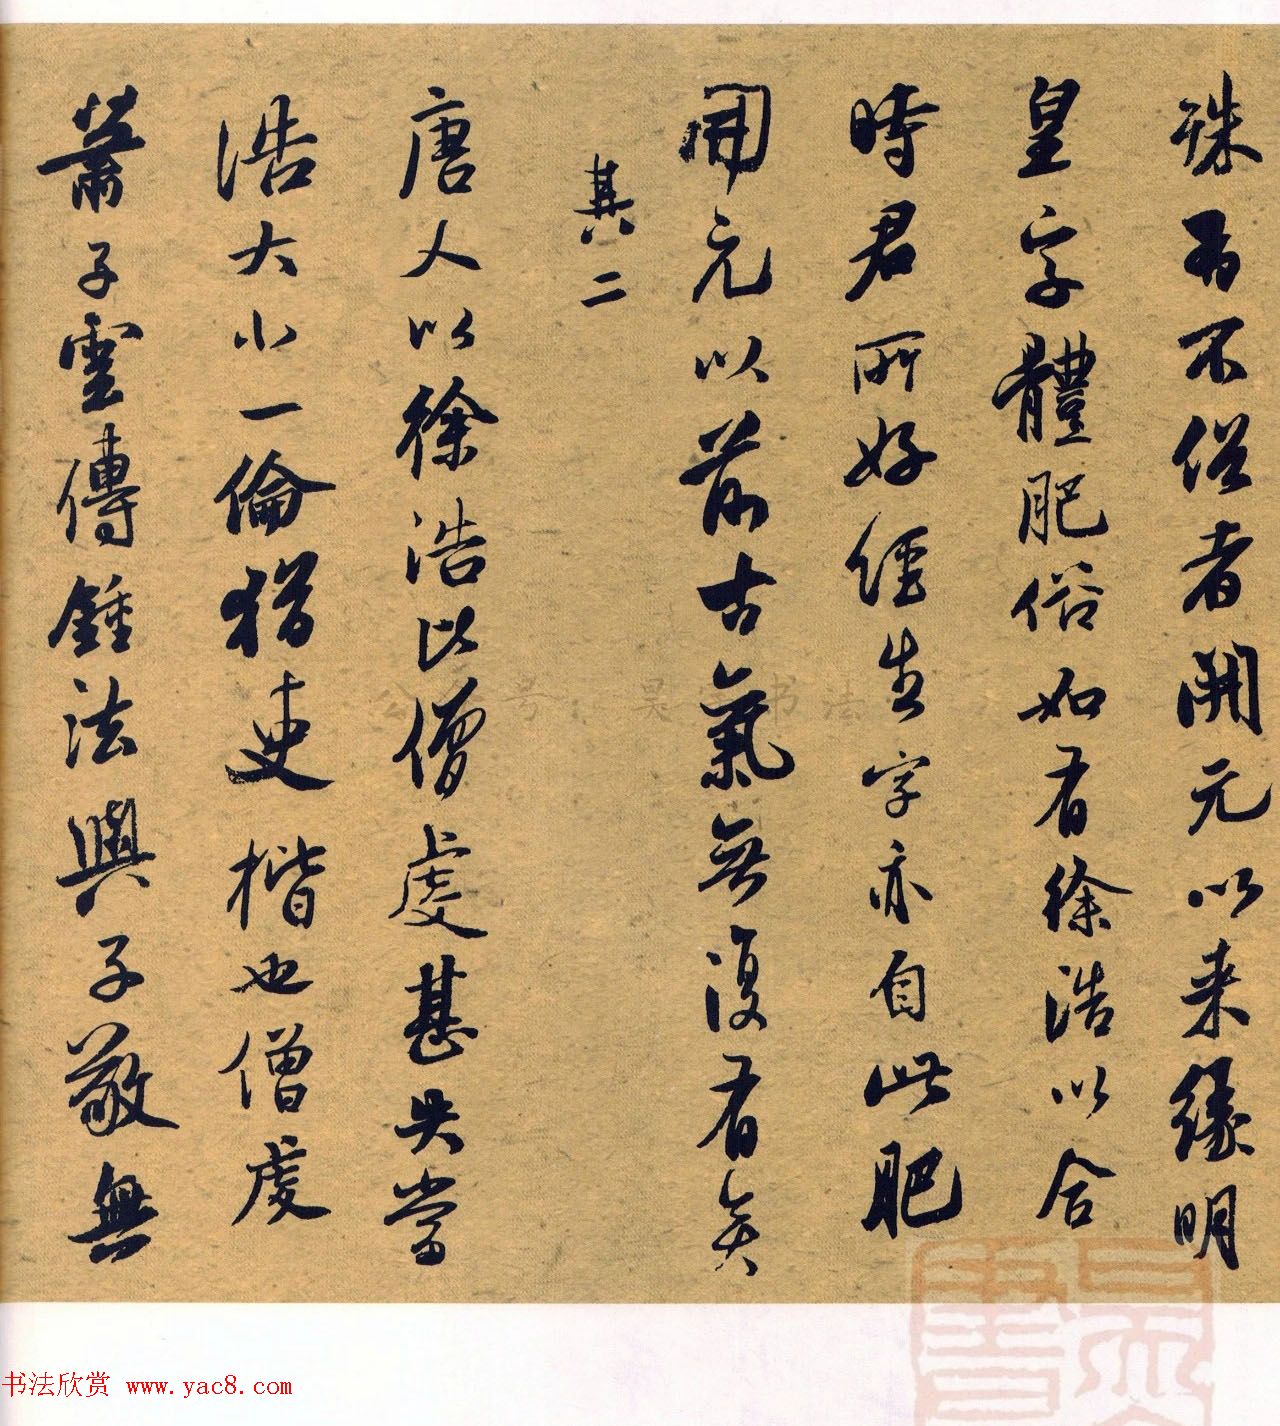 殊有不俗者開元以来緣明
皇字體肥俗如有徐浩以合
時君所好經生字亦自此肥
開元以前古氣無復有矣
其二
唐人以徐浩比僧虔甚失當
浩大小一倫猶吏楷也僧虔
蕭子雲傳鍾法與子敬無
书法欣赏 www.yac8.com